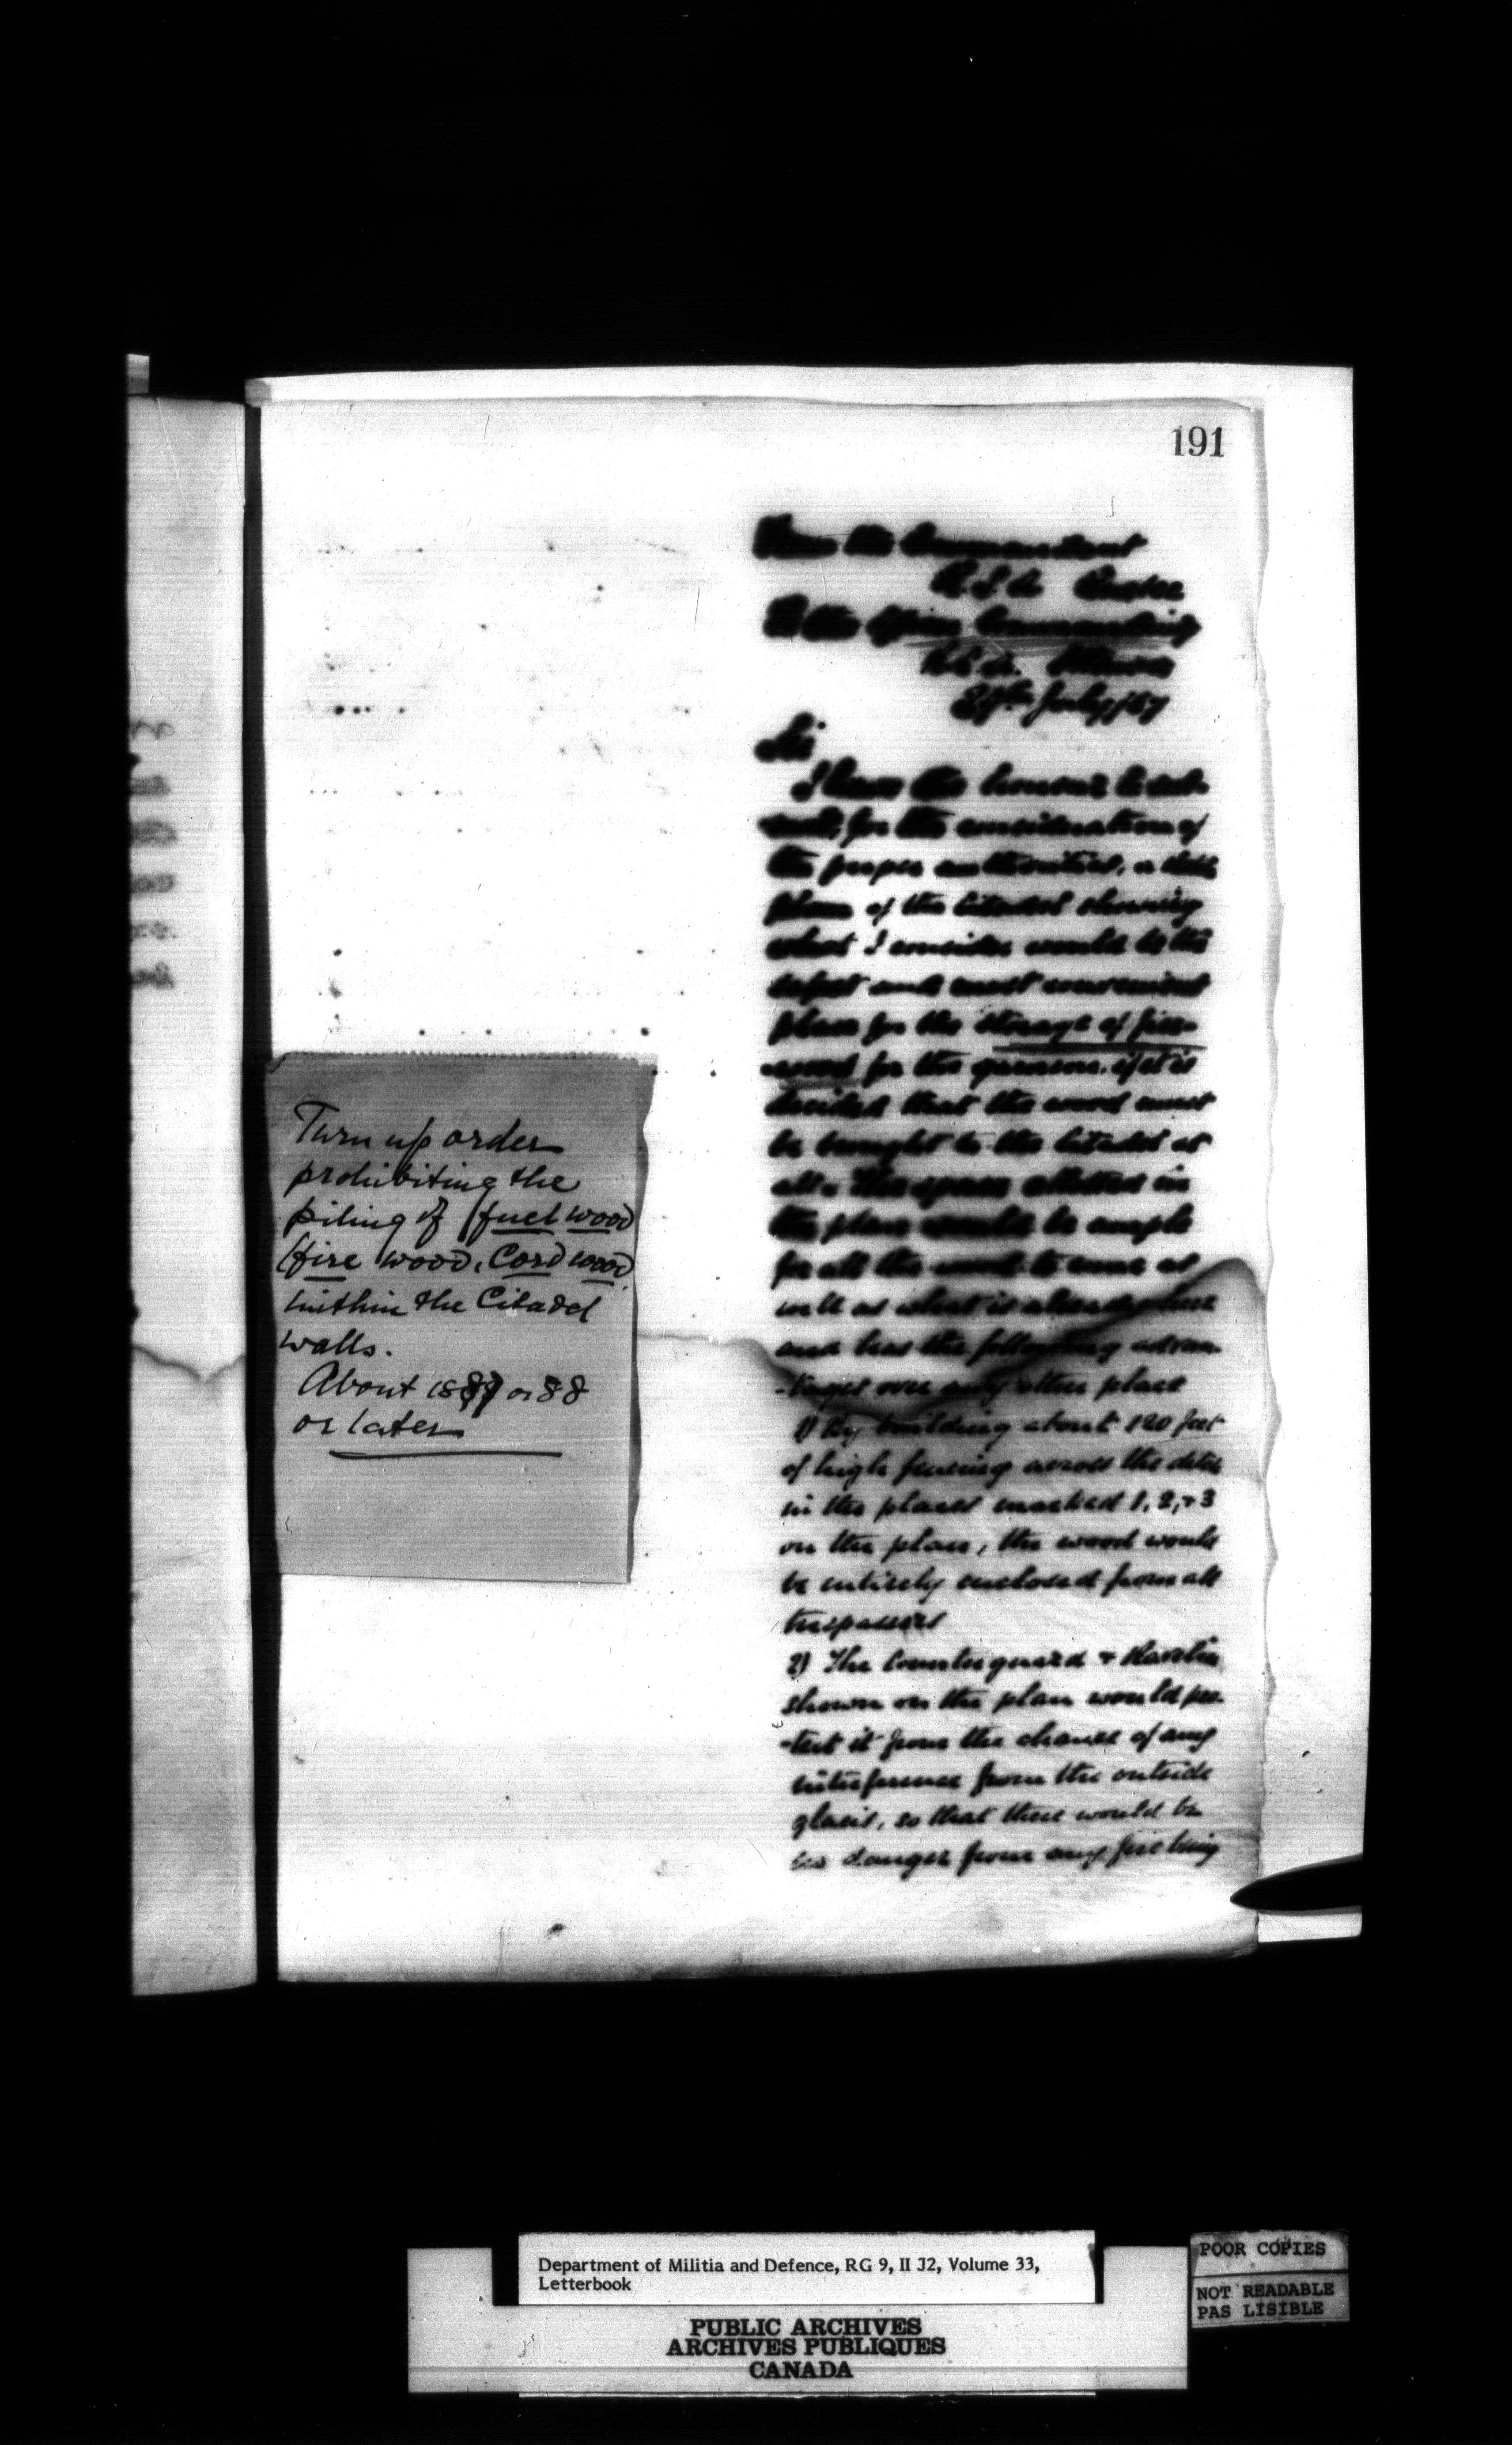 191
From the Commandant
R.S.A. Quebec
To the Officer Commanding
R.S.A. Ottawa
29th July/87
Sir
I have the honour to sub-
-mit, for the consideration of
the proper authorities, a
plan of the Citadel showing
what I consider would be the
safest and most convenient
place for the storage of fire-
-wood for the garrison, if it is
decided that the wood must
be brought to the Citadel at
all. The space allotted in
the plan would be ample
for all the wood to come as
well as what is already
and has the following advan-
-tages over any other place
1) By building about 120 feet
of high fencing across the ditch
in the places marked 1, 2, + 3
on the plan, the wood would
be entirely enclosed from all
trespassers
2) The Counterguard + Ravelin
shown on the plan would pro-
-tect it from the chance of any
interference from the outside
glacis, so that there would be
no danger from any fire being
Turn up order
prohibiting the
piling of (fuel wood
(fire wood, Cord wood
within the Citadel
walls.
About 1887 or 88
or later
Department of Militia and Defence, RG 9, II J2, Volume 33,
Letterbook
PUBLIC ARCHIVES
ARCHIVES PUBLIQUES
CANADA
POOR COPIES
NOT READABLE
PAS LISIBLE